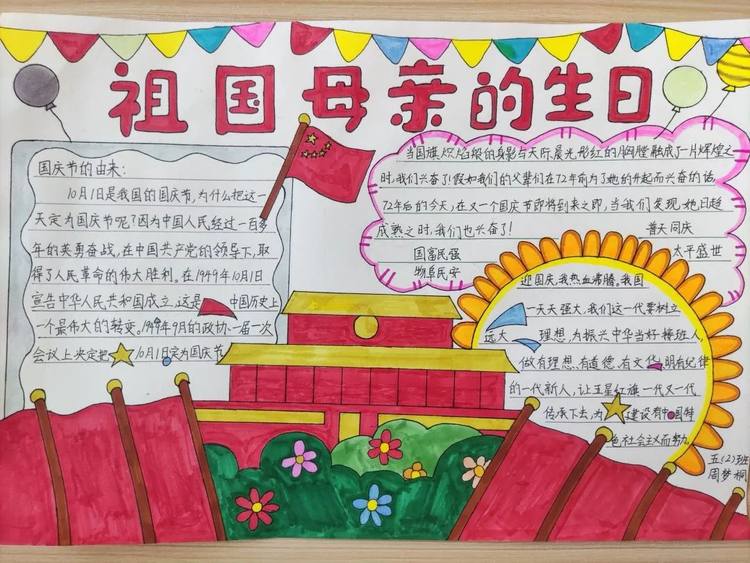 祖国母亲的生日
国庆节的由来:
10月1日是我国的国庆节,为什么把这一
天定为国庆节呢?因为中国人民经过一百多
年的英勇奋战,在中国共产党的领导下,取
得了人民革命的伟大胜利。在1949年10月1日
宣告中华人民共和国成立,这是 中国历史上
一个最伟大的转变。1949年9月的政协一届一次
会议上决定把 10月1日定为国庆节
当国旗 的身影与天际晨光彤红的胸膛融成了一片辉煌之
时,我们兴奋了!假如我们的父辈们在72年前为了她的升起而兴奋的话,
72年后的今天,在又一个国庆节即将到来之即,当我们发现她日趋
成熟之时,我们也兴奋了! 普天同庆
国富民强 太平盛世
物阜民安
迎国庆,我热血沸腾,我国
一天天强大,我们这一代要树立
远大 理想,为振兴中华当好接班人,
做有理想、有道德、有文化、明有纪律
的一代新人,让五星红旗一代又一代
传承下去,为 建设有中国特
色社会主义而努力
五(2)班
周梦桐